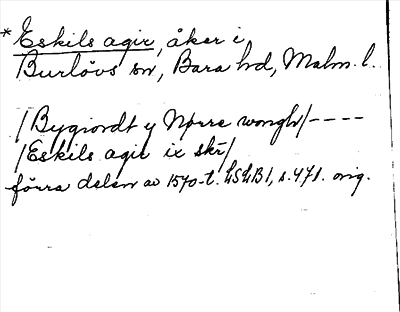 *Eskils agir, åker i
Burlövs sn, Bara hd, Malm. l.
/Bygiordt y Nørre wongh/----
/Eskils agir ix skr̄/
förra delen av 1570-t. LSLB1, s. 471. orig.